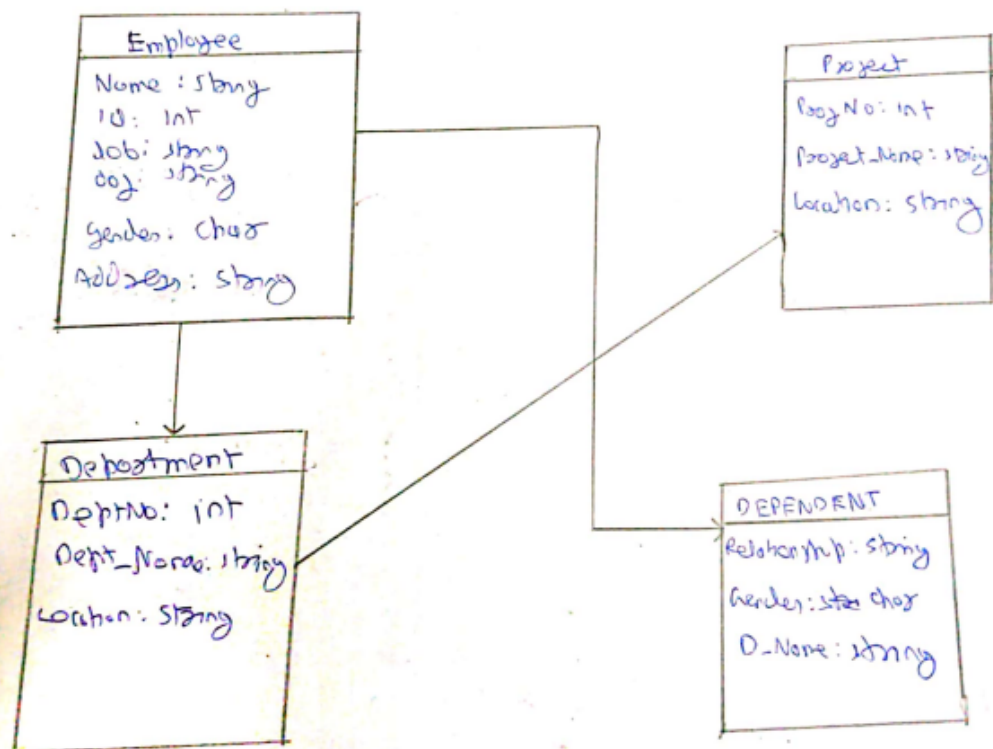 Employee
Name : string
id: int
Job: string
doj: string
Gender: char
Address: string
Project
ProjNo: int
Project_Name: string
Location: string
Department
DeptNo: int
Dept_Name: string
Location: string
DEPENDENT
Relationship: string
Gender: char
D_Name: string